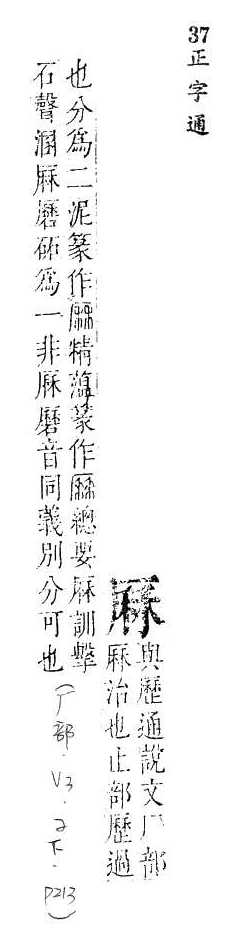 37
正字通
厤
與歷通說文厂部
厤治也止部歷過
也分爲二泥篆作精薀篆作總要厤訓擊
石聲溷厤磿爲一非厤磿音同義別分可也
(厂部.V3.子下.P213)